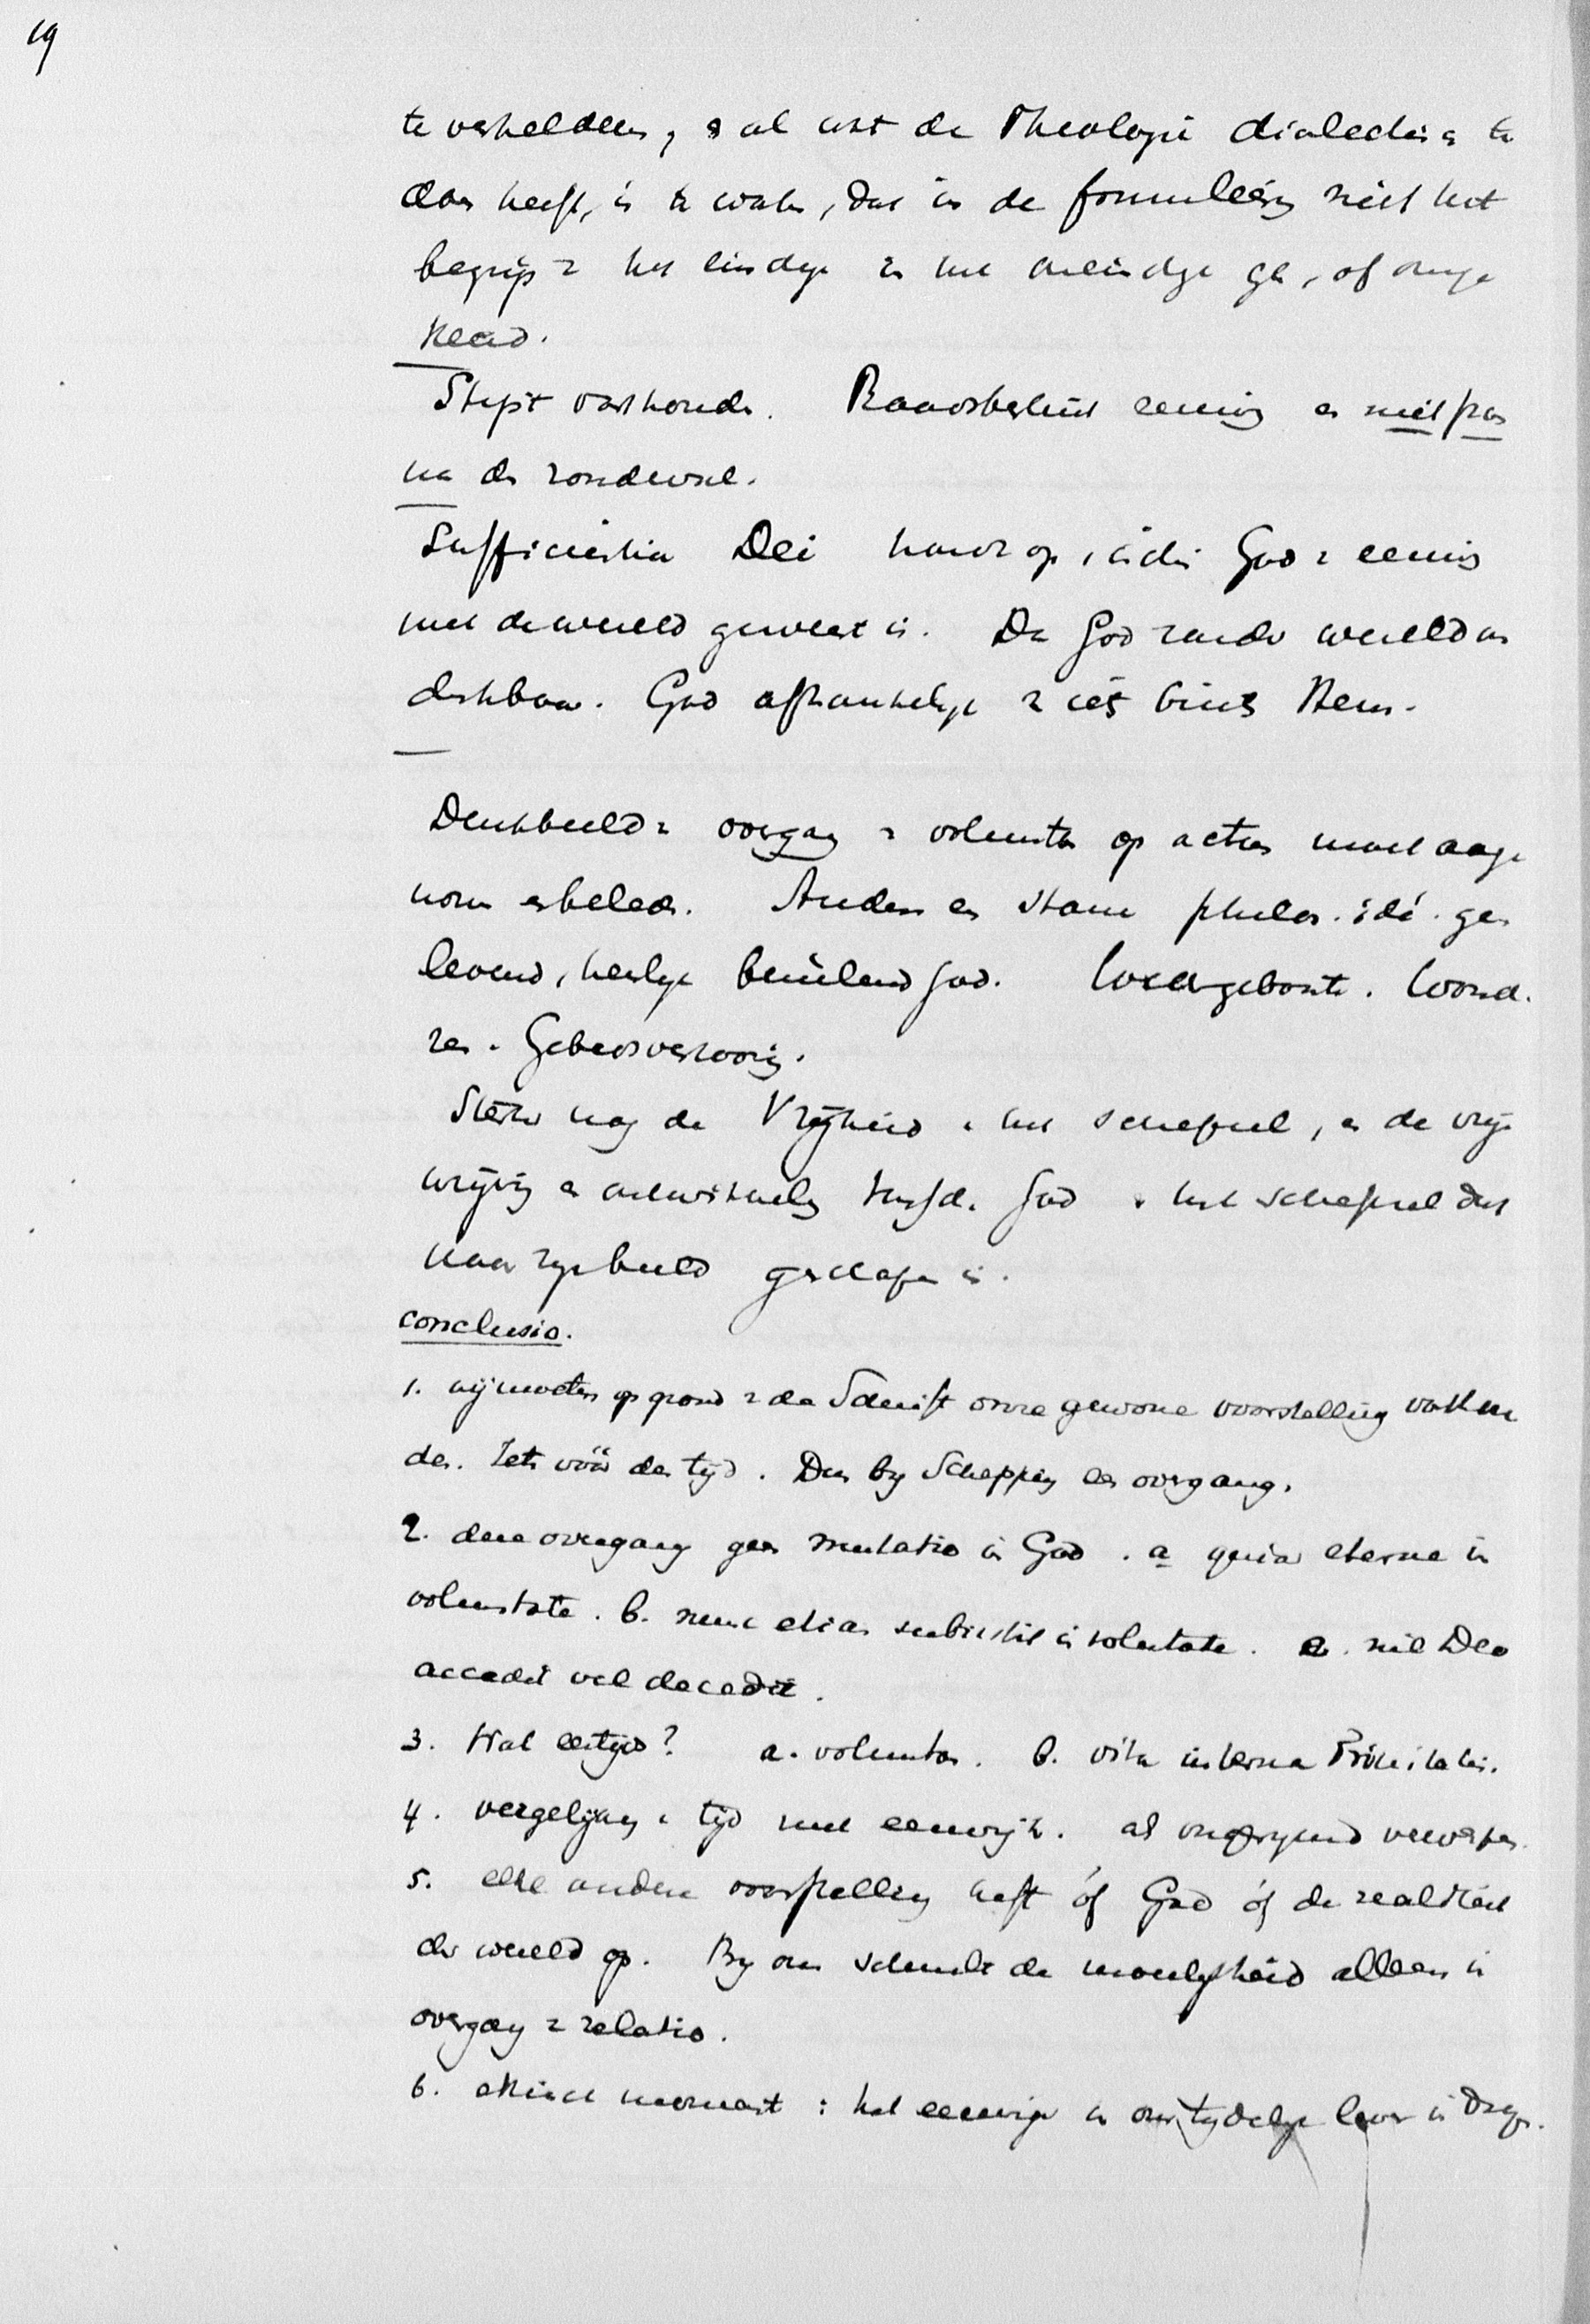 19
te verhelderen, al wat de Theologie dialectisch te
doen heeft, is te waken, dat in de formuleering niet het
begrip v het eindige in het oneindige ga, of omge
keerd.
Stipt vasthouden. Raadsbesluit eeuwig en niet pas
na den zondeval.
Sufficientia Dei houdt op, indien God v eeuwig
met de wereld geweest is. De God zonder wereld on
denkbaar. God afhankelijk v iets buiten Hem.
Denkbeeld v overgang v voluntas op actus moet aange
nomen en beleden. Anders en starre philos. idé. geen
levend, heerlijk bezielend God. Wedergeboorte. Wond.
ren. Gebedsverhooring.
Sterker nog de Vrijheid v het schepsel, en de vrije
wrijving en ontwikkeling tussch. God en het schepsel dat
naar zijn beeld geschapen is.
conclusio.
1. wij moeten op grond v de Schrift onze gewone voorstelling vasthou
den. Iets vóór den tijd. Dus bij Schepping een overgang.
2. deze overgang geen mutatio in God. a quia eterne in
voluntate. b. nunc etiam subsistit in voluntate. c. nil Deo
accedit vel decedit.
3. Wat eertijds? a. voluntas. b. vita interna Trinitatis.
4. vergelijking v tijd met eeuwigh. als ongerijmd verwerpen.
5. elke andere voorstelling heft óf God óf de realiteit
der wereld op. Bij ons schuilt de moeilijkheid alleen in
overgang v relatio.
6. ethisch moment: het eeuwige in ons tijdelijk leven in drage.